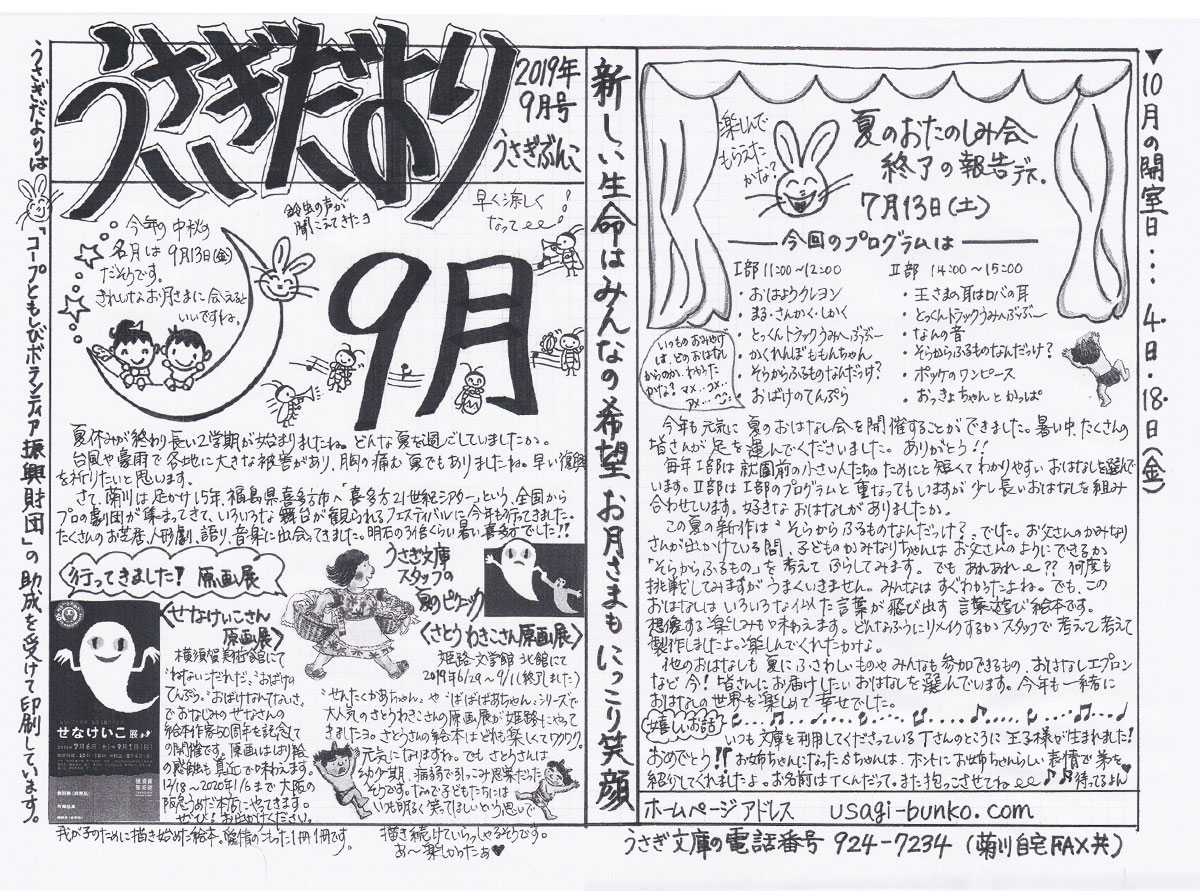 うさぎだより
2019年
9月号
うさぎぶんこ
うさぎだよりは「コープともしびボランティア振興財団」の助成を受けて印刷しています。
今年の中秋の
名月は9月13日(金)
だそうです。
きれいなお月さまに会えると
いいですね。
鈴虫の声が
聞こえてきたヨ
早く涼しく
なってee!
9月
夏休みが終わり長い2学期が始まりましたね。どんな夏を過ごしていましたか。
台風や豪雨で各地に大きな被害があり、胸の痛む夏でもありましたね。早い復興
を祈りたいと思います。
さて、菊川は足かけ15年、福島県喜多方市へ「喜多方21世紀シアター」という、全国から
プロの劇団が集まってきて、いろいろな舞台が観られるフェスティバルに今年も行ってきました。
たくさんのお芝居、人形劇、語り、音楽に出会ってきました。明石の3倍くらい暑い喜多方でした!!
行ってきました! 原画展
<せなけいこさん
原画展>
横須賀美術館にて
"ねないこだれだ"、"おばけの
てんぷら"、"おばけなんてないさ"
でおなじみのせなさんの
絵本作家50周年を記念して
の開催です。原画ははり絵
の感触も真近で味わえます。
12/18〜2020年1/6まで大阪の
阪急うめだ本店にやってきます。
ぜひ!お出かけください。
我が子のために描き始めた絵本。愛情のこもった1冊1冊です。
せなけいこ展
7月6日(土)→9月1日(日)
横須賀
美術館
うさぎ文庫
スタッフの
夏のピクニック
<さとうわきこさん原画展>
姫路文学館 北館にて
2019年6/29〜9/11(終了しました)
"せんたくかあちゃん"や"ばばばあちゃん"シリーズで
大人気のさとうわきこさんの原画展が姫路にやって
きましたヨ。さとうさんの絵本はどれも楽しくてワクワク。
元気になりますね。でもさとうさんは
幼少期、病弱で引っこみ思案だった
そうです。なので子どもたちには
いつも明るく笑ってほしいという思いで
描き続けていらっしゃるそうです。
あ〜楽しかったぁ♥
新しい生命はみんなの希望 お月さまもにっこり笑顔
楽しんで
もらえた
かな?
夏のおたのしみ会
終了の報告デス.
7月13日(土)
今回のプログラムは
Ⅰ部 11:00〜12:00
・おはようクレヨン
・まる・さんかく・しかく
・とっくんトラックうみへぶっぶー
・かくれんぼももんちゃん
・そらからふるものなんだっけ?
・おばけのてんぷら
Ⅱ部 14:00〜15:00
・王さまの耳はロバの耳
・とっくんトラックうみへぶっぶー
・なんの音
・そらからふるものなんだっけ?
・ポッケのワンピース
・おっきょちゃんとかっぱ
いつものおみやげ
は、どのおはなし
からのか、わかった
かな?
今年も元気に夏のおはなし会を開催することができました。暑い中、たくさんの
皆さんが足を運んでくださいました。ありがとう!!
毎年Ⅰ部は就園前の小さい人たちのためにと短くてわかりやすいおはなしを選んで
います。Ⅱ部はⅠ部のプログラムと重なってもいますが少し長いおはなしを組み
合わせています。好きなおはなしがありましたか。
この夏の新作は"そらからふるものなんだっけ?"でした。お父さんのかみなり
さんが出かけている間、子どものかみなりちゃんはお父さんのようにできるか
「そらからふるもの」を考えてふらしてみます。でもあれあれee?? 何度も
挑戦してみますがうまくいきません。みんなはすぐわかったよね。でも、この
おはなしはいろいろな似た言葉が飛び出す言葉遊び絵本です。
想像する楽しみも味わえます。どんなふうにリメイクするかスタッフで考えて考えて
製作しましたよ。楽しんでくれたかな。
他のおはなしも夏にふさわしいものやみんなも参加できるもの、おはなしエプロン
など今!皆さんにお届けしたいおはなしを選んでいます。今年も一緒に
おはなしの世界を楽しめて幸せでした。
嬉しいお話
いつも文庫を利用してくださっているTさんのところに王子様が生まれました!
おめでとう!! お姉ちゃんになったSちゃんは、ホントにお姉ちゃんらしい表情で弟を
紹介してくれましたよ。お名前はTくんだって。また抱っこさせてねee♪♪待ってるよん♥
ホームページアドレス usagi-bunko.com
うさぎ文庫の電話番号 924-7234 (菊川自宅FAX共)
▼10月の開室日・・・4日・18日(金)